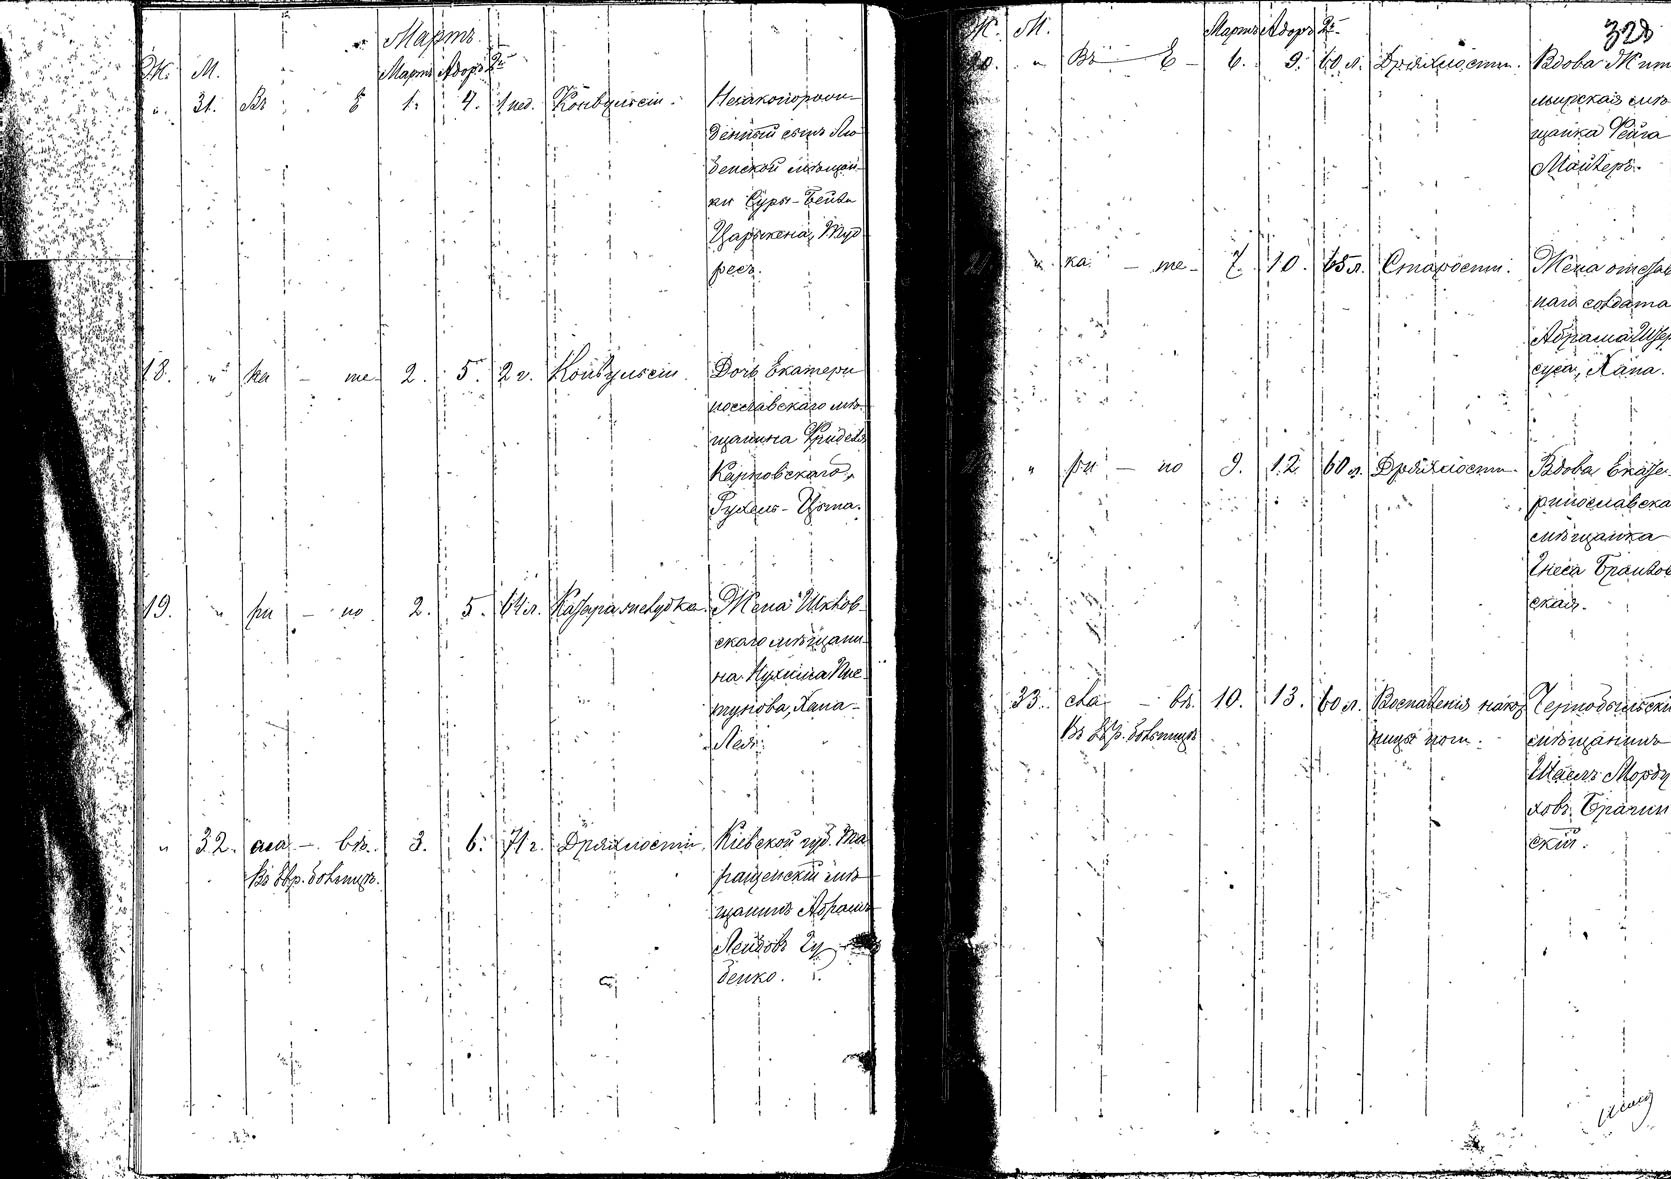 Мартъ
Ж. М. Мартъ Адоръ 2й
" 31. Въ Е 1. 4. 1 нед. Конвульсіи. Незаконорож-
денный сынъ Лю-
бенской мѣщан-
ки Суры-Бейли
Царикена,
ресъ.
18. " ка - те- 2. 5. 2 г. Конвульсіи. Дочь Екатери
нославскаго мѣ-
щанина Фриделя
Карповскаго,
Рухель-Цыта.
19. " ри - но 2. 5. 64 л. Катара желудка. Жена Шклов-
скаго мѣщани-
на Нухима Пис-
тунова, Хана-
Лея.
" 32. сла - въ. 3. 6. 71 г. Дряхлости. Кіевской губ. Та
Въ Евр. больницѣ. ращанскій мѣ-
щанинъ Абрамъ
Лейбовъ Гу
бенко.
328
Ж. М. Мартъ Адоръ 2й
20. " Въ Е - 6. 9. 60 л. Дряхлости. Вдова Жит
мирская мѣ
щанка Фейга
Майзеръ.
21. " ка - те- 7. 10. 65 л. Старости. Жена отстав
наго солдата
Абрама
суса, Хана.
" ри - но 9. 12. 60 л. Дряхлости. Вдова Екате-
ринославска
мѣщанка
Гнеса
ская.
33. сла - въ. 10. 13. 60 л. Воспаленія Чернобыльскі
Въ Евр. больницѣ ноги. мѣщанинъ
Шаелъ Морду
ховъ Брагин
скій.